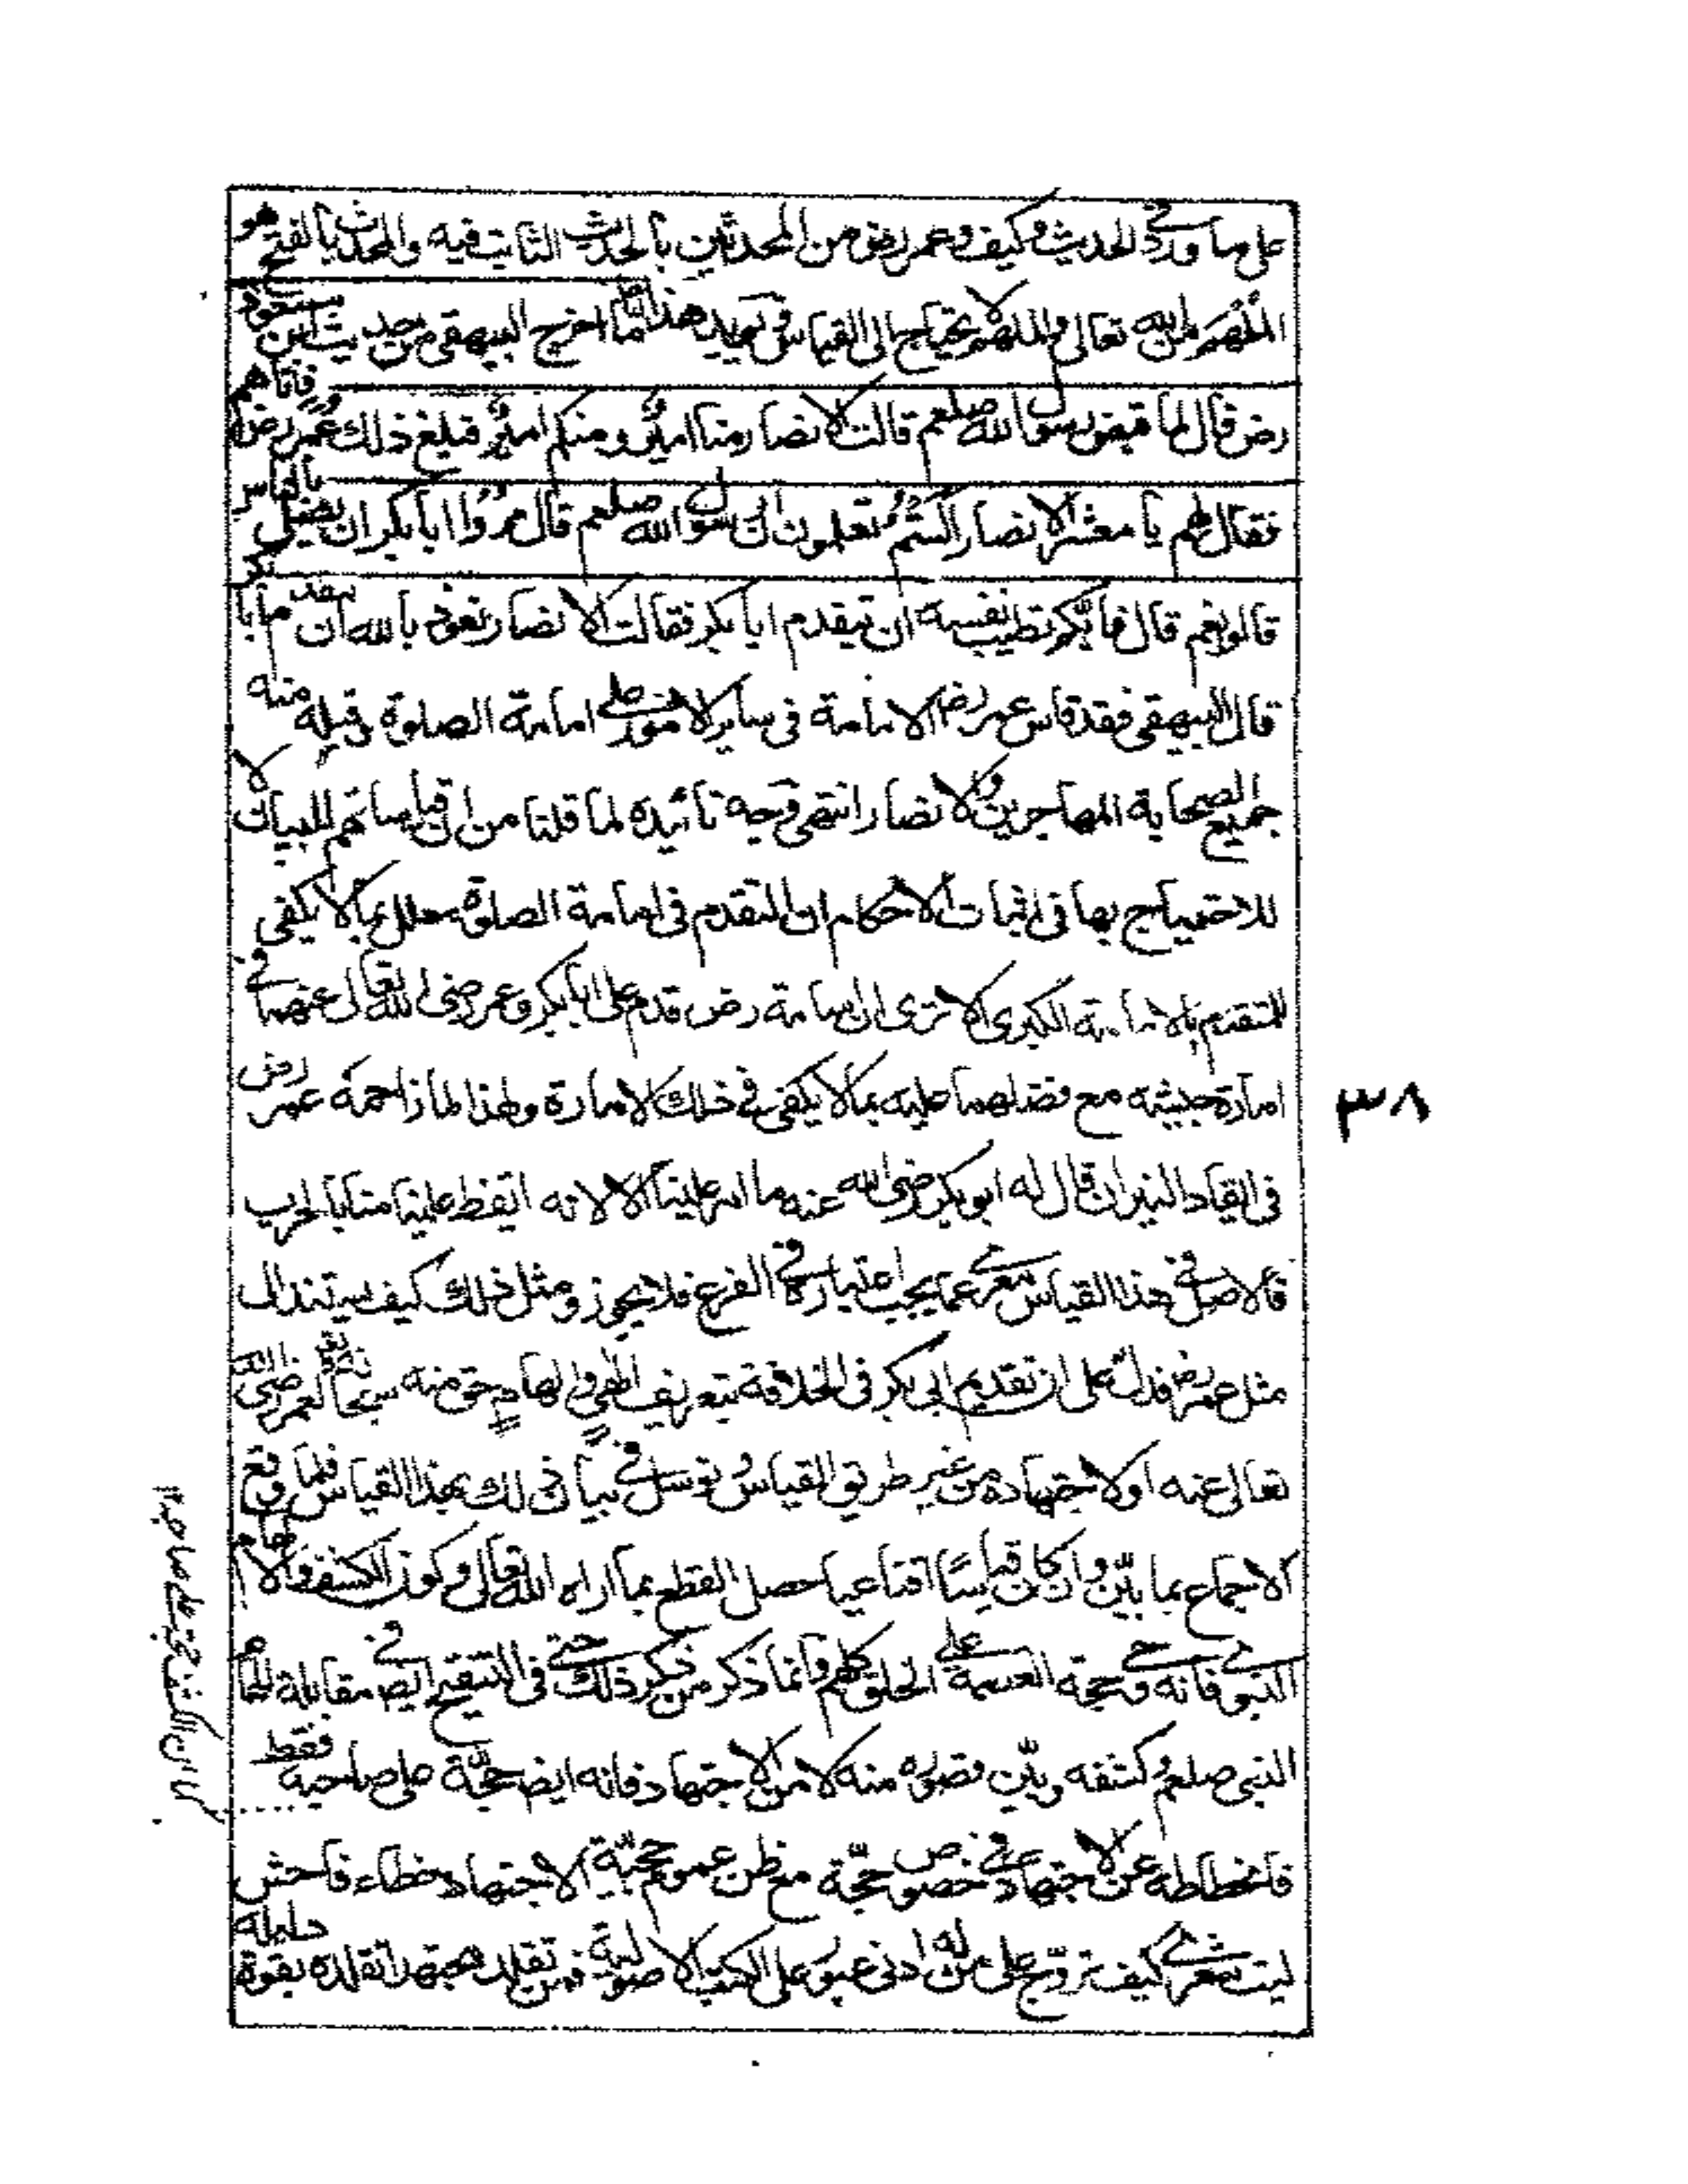 على ما ورد في الحديث وكيف وعمر رض من المحدثين بالحديث الثابت فيه والمحدث بالفتح هو
الملهم من الله تعالى والملهم لا يحتاج الى القياس في تويد هذا ما اخرج البيهقي من حديث ابن مسعود
رض قال لما قبض رسول الله صلعم قالت الانصار منا امير ومنكم امير فبلغ ذلك عمر رض فاتاهم
فقال لهم يا معشر الانصار الستم تعلمون ان رسول الله صلعم قال مروا ابا بكر ان يصلي بالناس
قالوا نعم قال فايكم تطيب نفسه ان يتقدم ابا بكر فقالت الانصار نعوذ بالله ان نتقدم ابا بكر
قال البيهقي فقد قاس عمر رض الامامة في ساير الامور على امامة الصلوة وقبله منه
جميع الصحابة المهاجرين والانصار انتهى وجه تائيده لما قلنا من ان قياساتهم للبيان لا
للاحتياج بها في اثبات الاحكام ان التقدم في امامة الصلوة معلل بما لا يكفي
للتقدم بالامامة الكبرى الا ترى ان اسامة رض قدم على ابا بكر وعمر رضى الله تعالى عنهما في
امارة جيشه مع فضلهما عليه بما لا يكفي في ذلك الامارة ولهذا لما زاحمه عمر رض
في ايقاد النيران قال له ابو بكر رضى الله عنه ما امر علينا الا لانه ايقظ علينا منا بالحرب
فالاصل في هذا القياس معرى عما يجب اعتباره في الفرع فلا يجوز ومثل ذلك كيف يستند الى
مثل عمر رض فدل على ان تقديم ابي بكر في الخلافة بتعريف الهي والهام حق منه سبحانه تعالى لعمر رضى الله
تعالى عنه او لاجتهاده من غير طريق القياس وتوسل في بيان ذلك بهذا القياس فلما وقع
الاجماع بما بين وان كان قياسا اقناعيا حصل القطع بما اراه الله تعالى وكون الكشف والالهام
النبوي فانه وحي حجة العصمة على الخلق كلهم وانما ذكر من ذكر ذلك حتى في التنقيح ايض في مقابلة الهام
النبي صلعم وكشفه وبين قصوره منه لا من الاجتهاد فانه ايض حجة على صاحبه فقط
فانحطاطه عن الاجتهاد في خصوص حجة مع ظن عموم حجية الاجتهاد خطاء فاحش
ليت شعري كيف تروج على من له ادنى عبور على الكتب الاصولية فمن تقلد مجتهدا تقلده بقوة دليله
كما ان الكشف حجة على صاحبه ١٢
٣٨